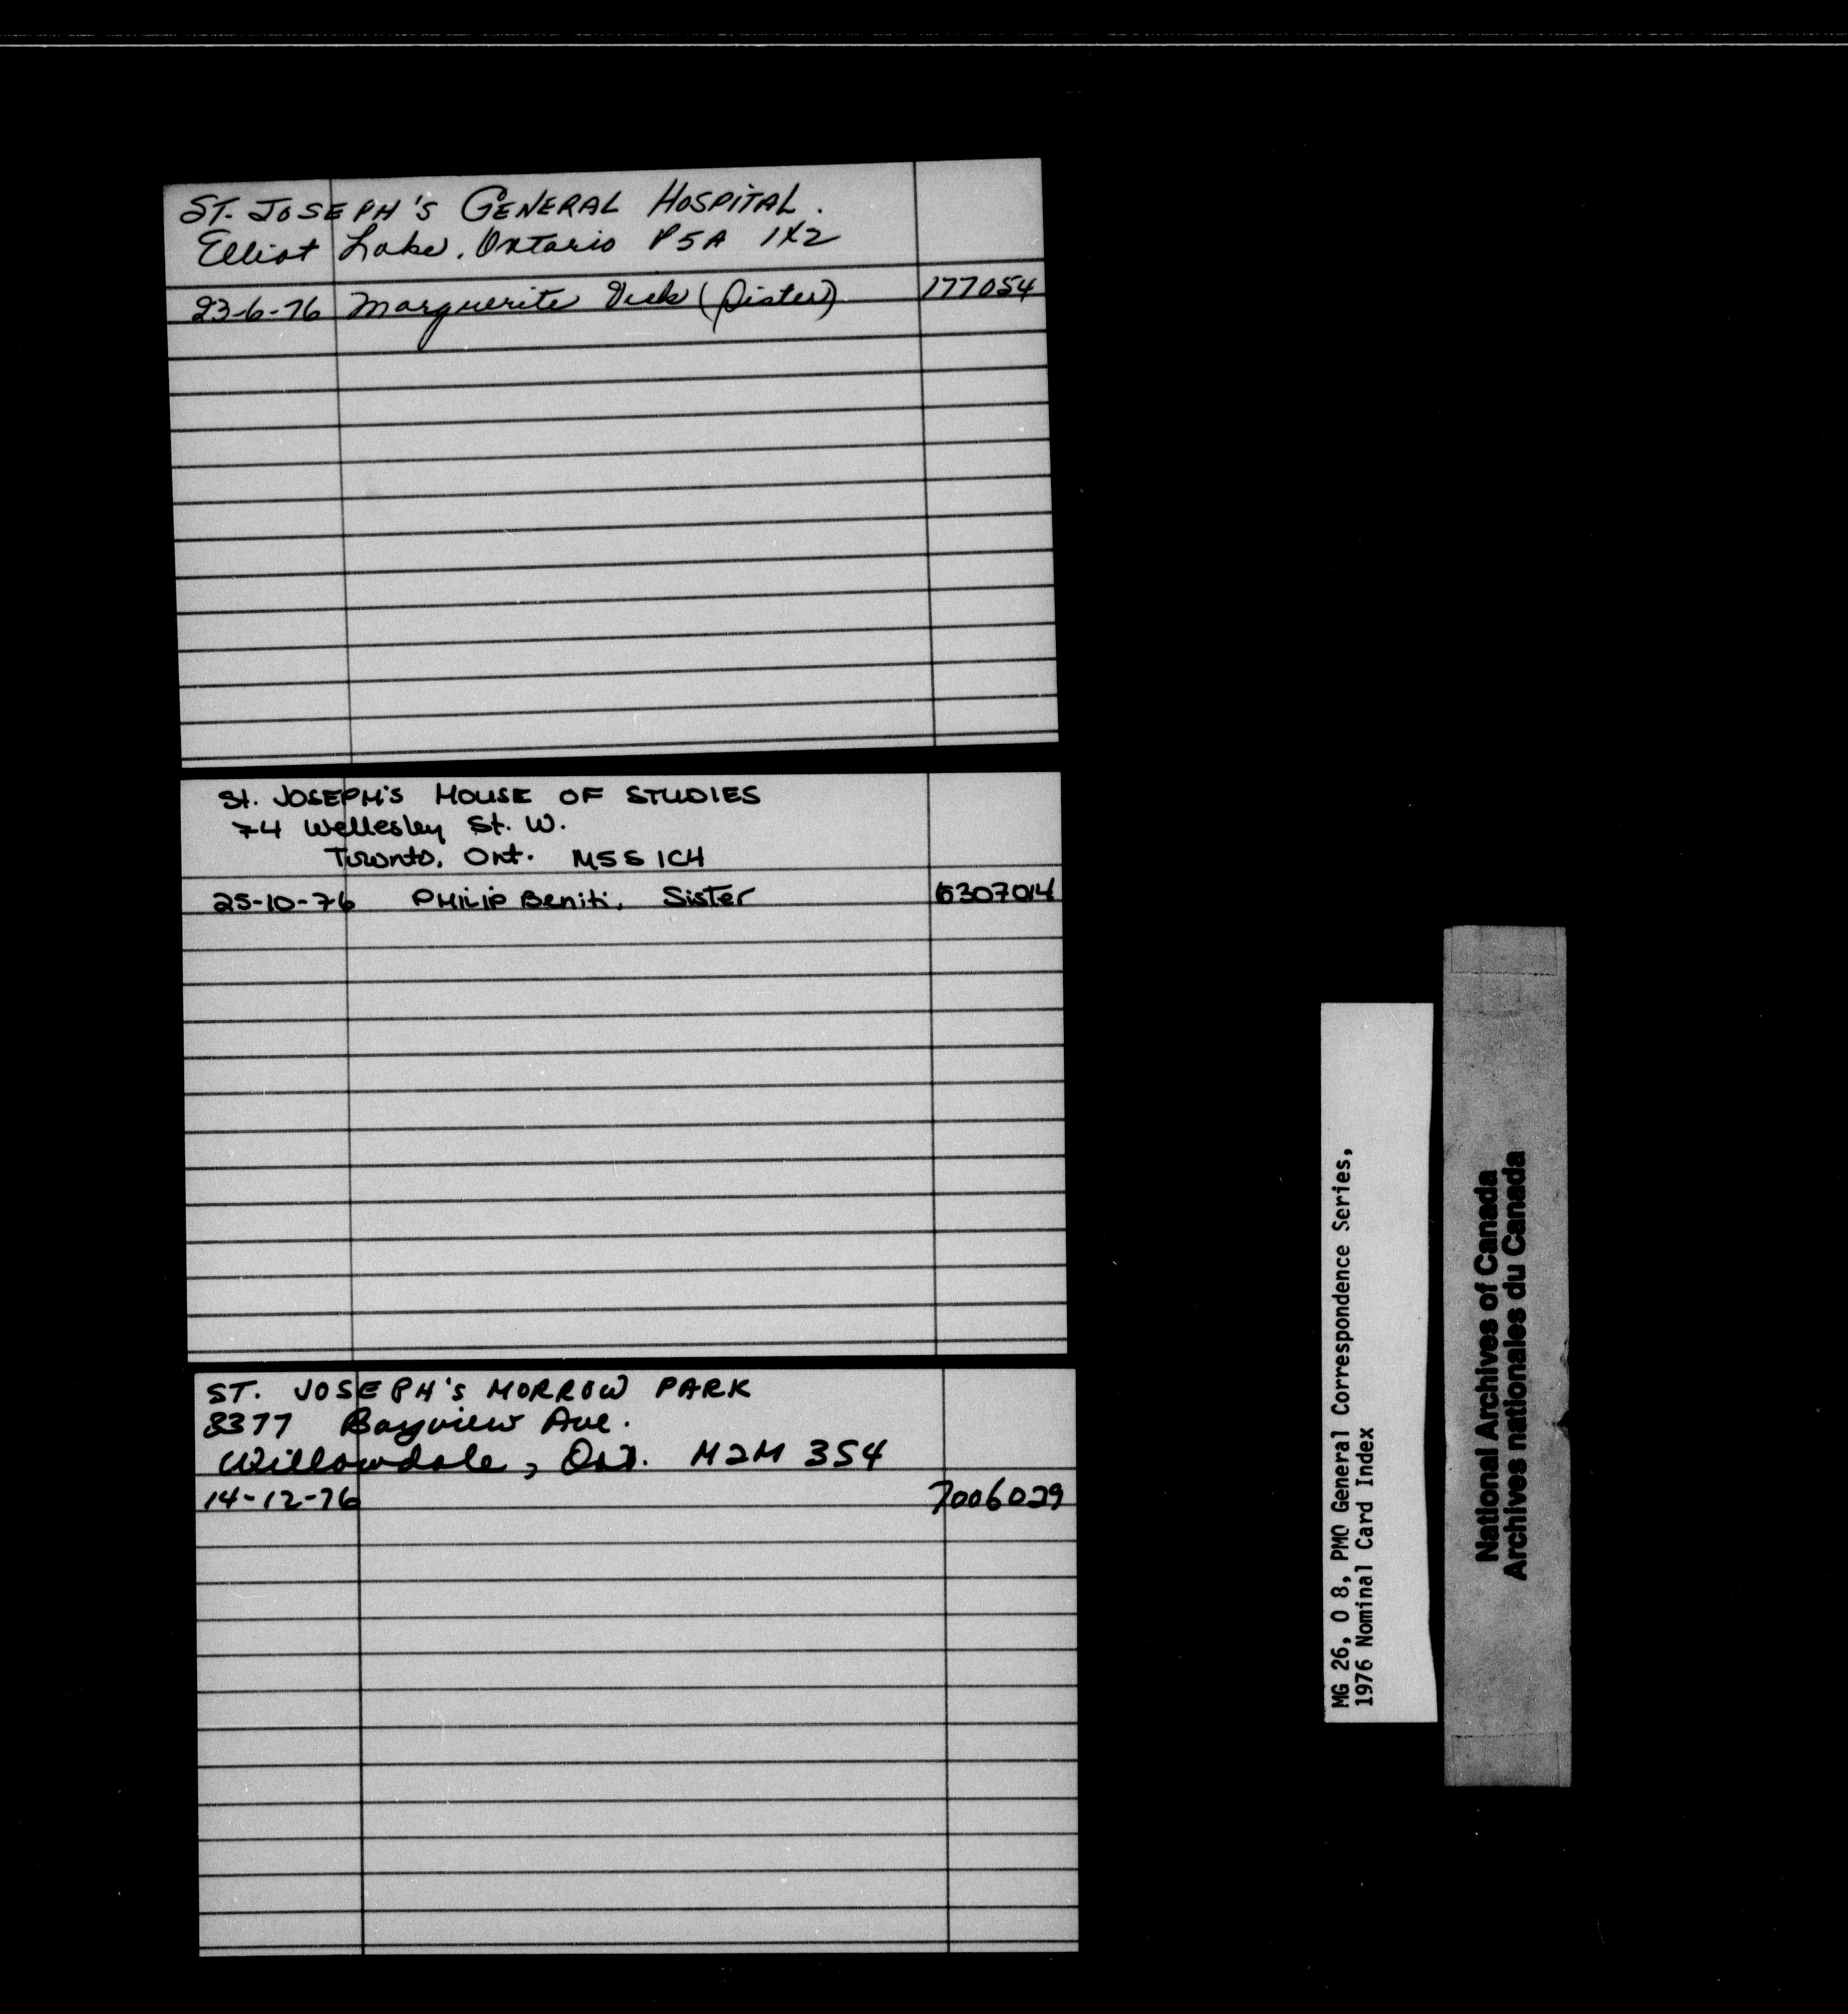 ST. JOSEPH'S GENERAL HOSPITAL.
Elliot Lake, Ontario P5A 1X2
23-6-76 Marguerite (Sister) 177054
St. JOSEPH'S HOUSE OF STUDIES
74 Wellesley St. W.
Toronto, Ont. M5S 1C4
25-10-76 PHILIP Beniti, Sister 6307014
ST. JOSEPH'S MORROW PARK
3377 Bayview Ave.
Willowdale, Ont. M2M 3S4
14-12-76 7006029
MG 26, O 8, PMO General Correspondence Series,
1976 Nominal Card Index
National Archives of Canada
Archives nationales du Canada